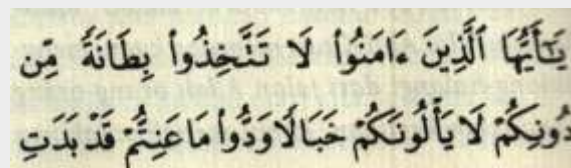 يَـٰٓأَيُّهَا ٱلَّذِينَ ءَامَنُوا۟ لَا تَتَّخِذُوا۟ بِطَانَةً مِّن
دُونِكُمْ لَا يَأْلُونَكُمْ خَبَالًا وَدُّوا۟ مَا عَنِتُّمْ قَدْ بَدَتِ